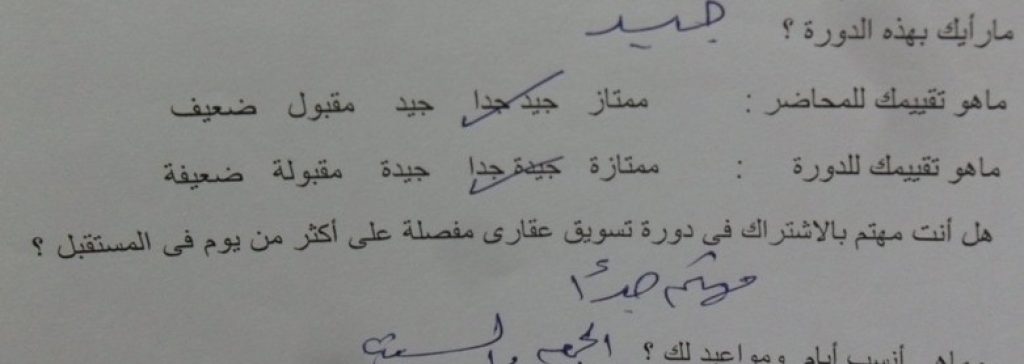 مارأيك بهذه الدورة ؟ جيد
ماهو تقييمك للمحاضر : ممتاز جيد جدا جيد مقبول ضعيف
ماهو تقييمك للدورة : ممتازة جيدة جدا جيدة مقبولة ضعيفة
هل أنت مهتم بالاشتراك فى دورة تسويق عقارى مفصلة على أكثر من يوم فى المستقبل ؟
مهتم جداً
أنسب أيام ومواعيد لك ؟ الجمعة والسبت